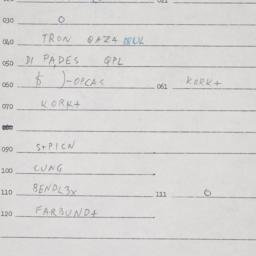 030 0
040 TRON QAZ4
050 DI PADES QPL
050 )-OPCAS 061 KORK+
070 KORK+
090 S+PICN
100 CUNG
110 BENDL3X 111 0
120 FARBUND+